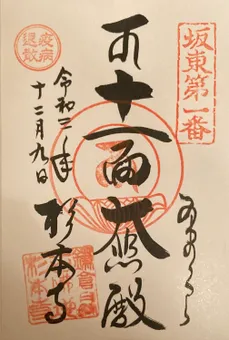 坂東第一番
かまくら
十一面大悲殿
疫病
退散
令和二年
十二月九日
杉本寺
杉本寺